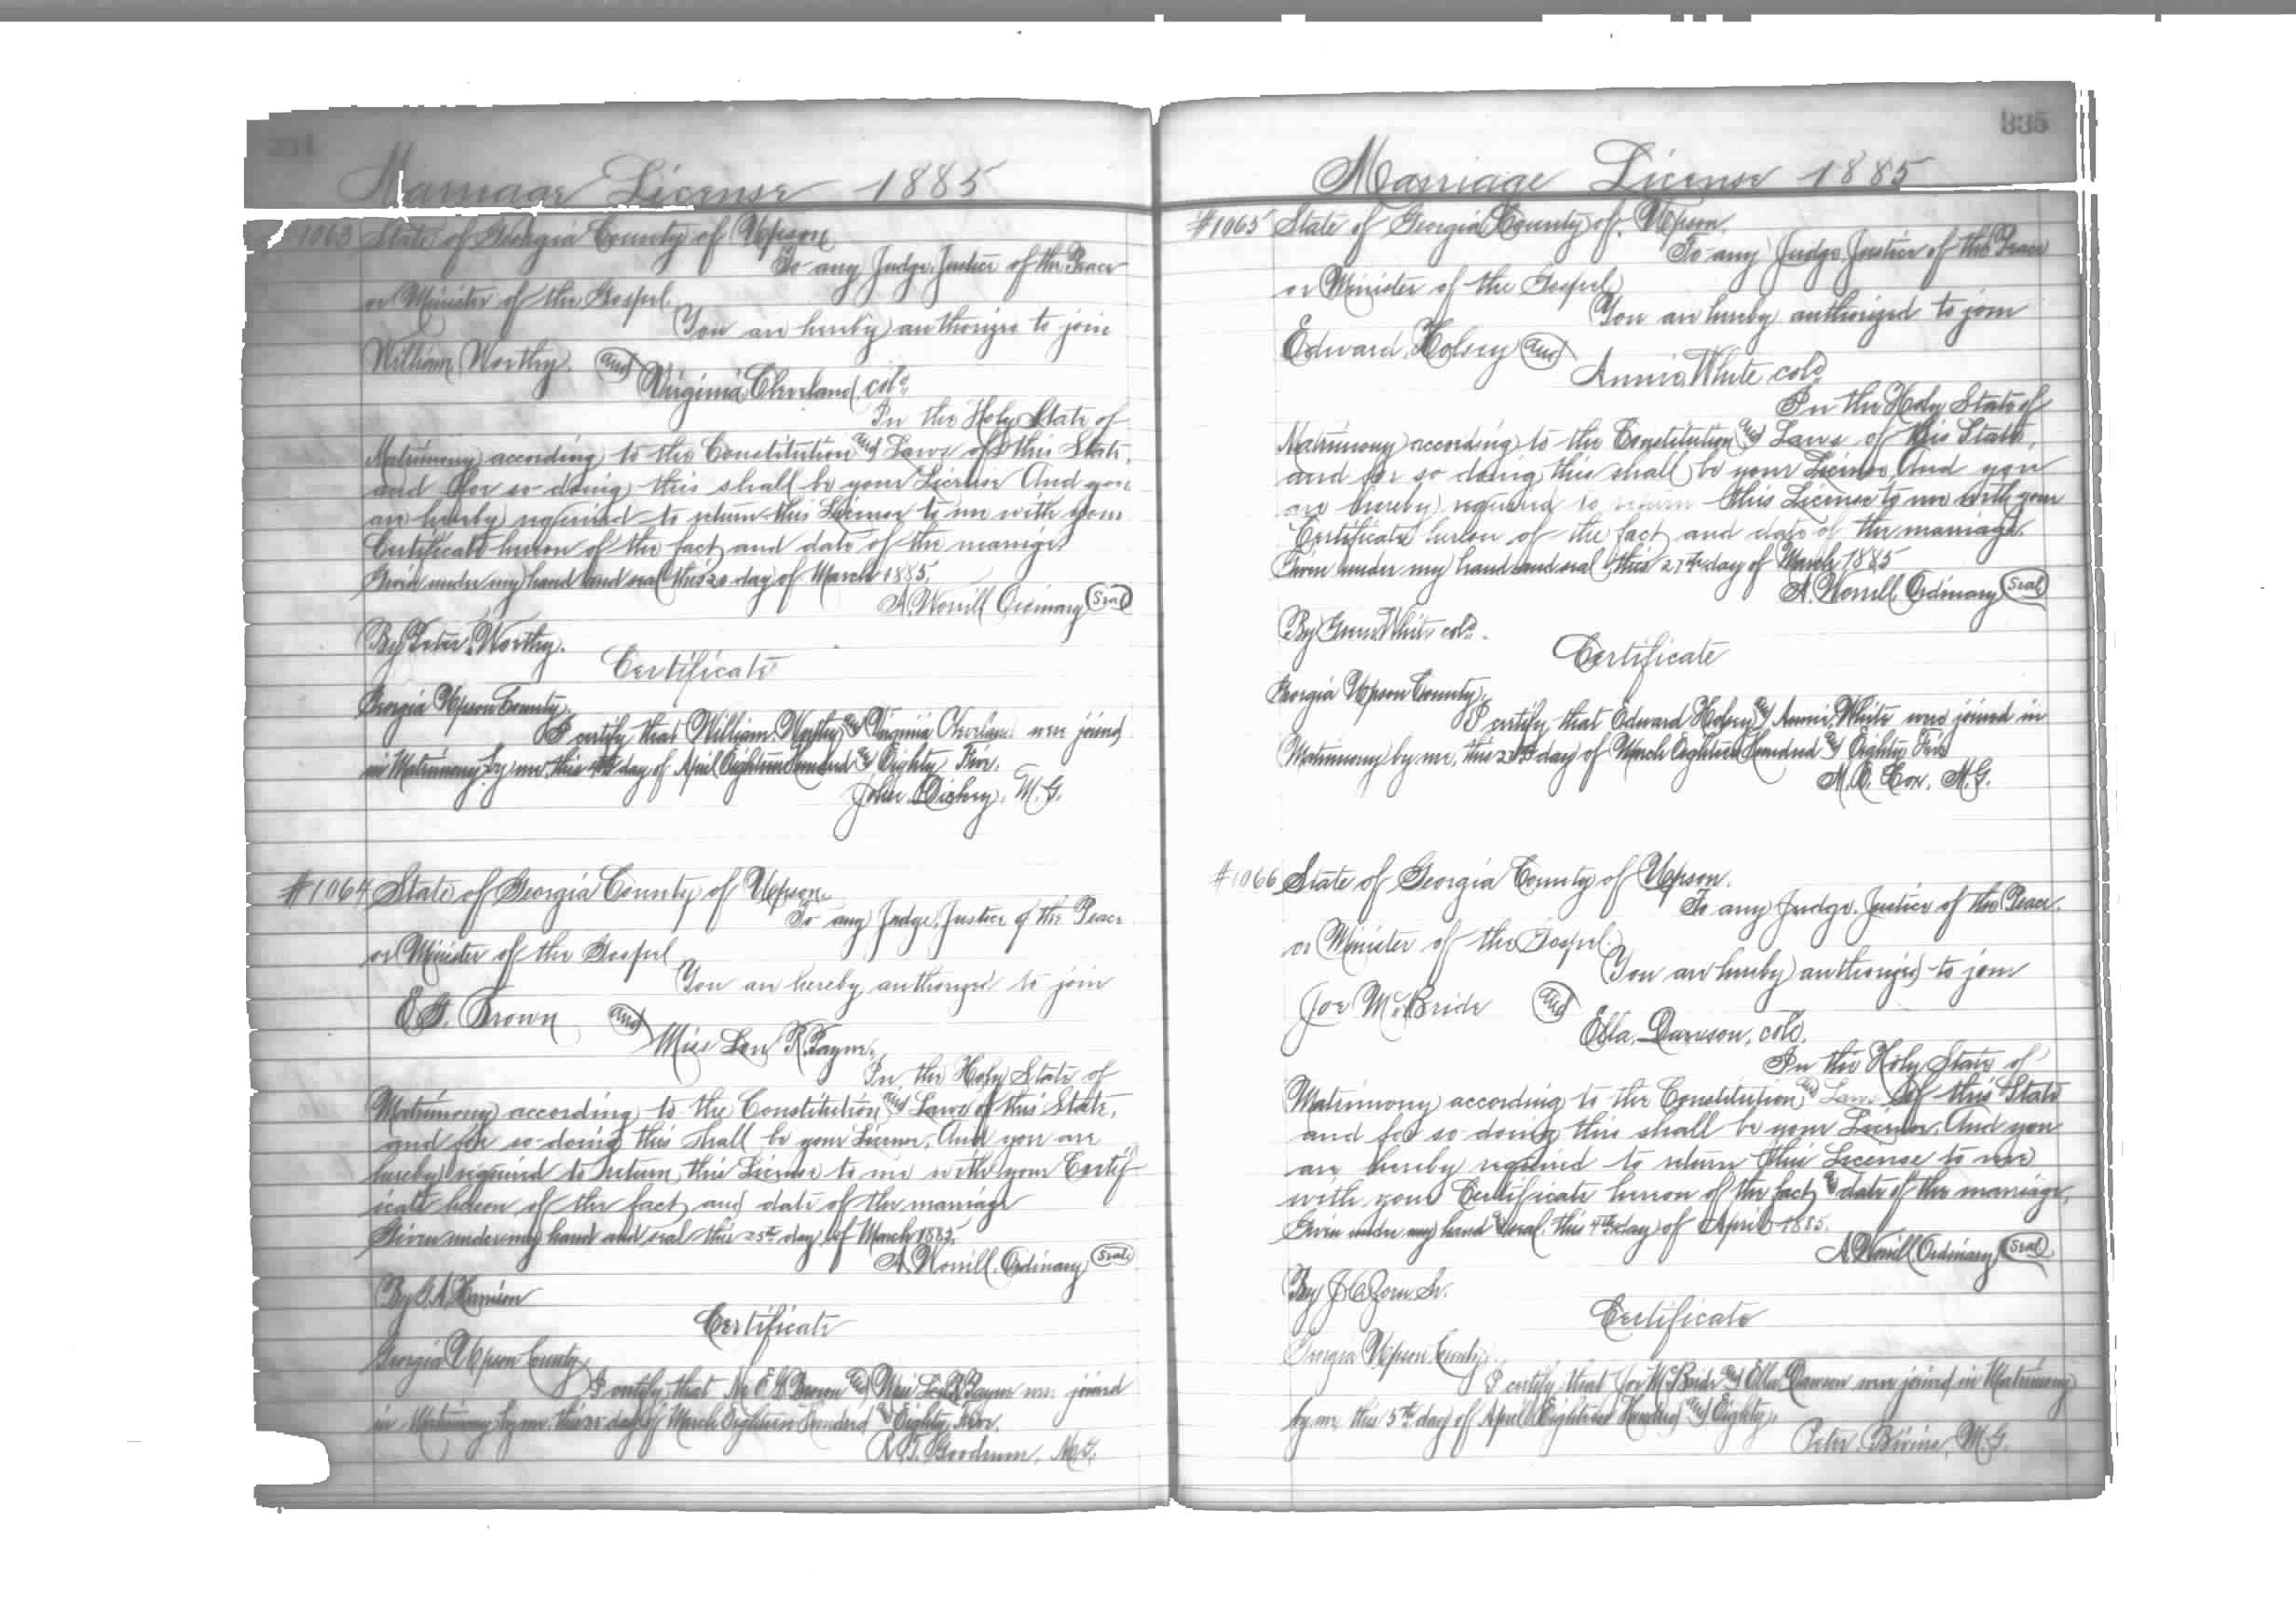 Marriage License 1885
1063 State of Georgia County of Upson
To any Judge, Justice of the Peace
or Minister of the Gospel
You are hereby authorized to join
William Worthy and
Virginia Cleveland, cold.
In the Holy State of
Matrimony according to the Constitution and Laws of this State,
and for so doing this shall be your License And you
are hereby required to return this License to me with your
Certificate hereon of the fact and date of the marriage
Given under my hand and seal this 20 day of March 1885.
A. Worrill Ordinary Seal
By Peter Worthy.
Certificate
Georgia Upson County.
I certify that William Worthy and Virginia Cleveland were joined
in Matrimony by me, this day of April Eighteen Hundred and Eighty Five.
John Dickey, M. G.
#1064 State of Georgia County of Upson.
To any Judge, Justice of the Peace
or Minister of the Gospel
You are hereby authorized to join
Brown and
Miss R.
In the Holy State of
Matrimony according to the Constitution and Laws of this State,
and for so doing this shall be your License, And you are
hereby required to return this License to me with your Certif-
icate hereon of the fact and date of the marriage
Given under my hand and seal this 25th day of March 1885.
A. Worrill, Ordinary Seal
By
Certificate
Georgia Upson County
I certify, that Mr Brown and Miss were joined
in Matrimony by me, this day of March Eighteen Hundred and Eighty Five.
R. T. Goodrum, M. G.
335
Marriage License 1885
#1065 State of Georgia County of Upson.
To any Judge, Justice of the Peace
or Minister of the Gospel
You are hereby authorized to join
Edward Holsey and
Annie White cold
In the Holy State of
Matrimony according to the Constitution and Laws of this State,
and for so doing this shall be your License And you
are hereby required to return this License to me with your
Certificate hereon of the fact and date of the marriage.
Given under my hand and seal this 27th day of March 1885
A. Worrill, Ordinary Seal
By White cold.
Certificate
Georgia Upson County,
I certify that Edward Holsey and Annie White were joined in
Matrimony by me, this day of March Eighteen Hundred and Eighty Five
Cox, M. G.
#1066 State of Georgia County of Upson.
To any Judge, Justice of the Peace.
or Minister of the Gospel.
You are hereby authorized to join
Joe McBride and
Ella Dawson, cold,
In the Holy State of
Matrimony according to the Constitution and Laws of this State
and for so doing this shall be your License. And you
are hereby required to return this License to me
with your Certificate hereon of the fact & date of the marriage,
Given under my hand & seal, this 4th day of April 1885.
A. Worrill, Ordinary, Seal
By J. C. Zorn Sr.
Certificate
Georgia Upson County.
I certify that Joe McBride and Ella Dawson were joined in Matrimony
by me this 5th day of April Eighteen Hundred and Eighty,
Peter Bivins, M. G.